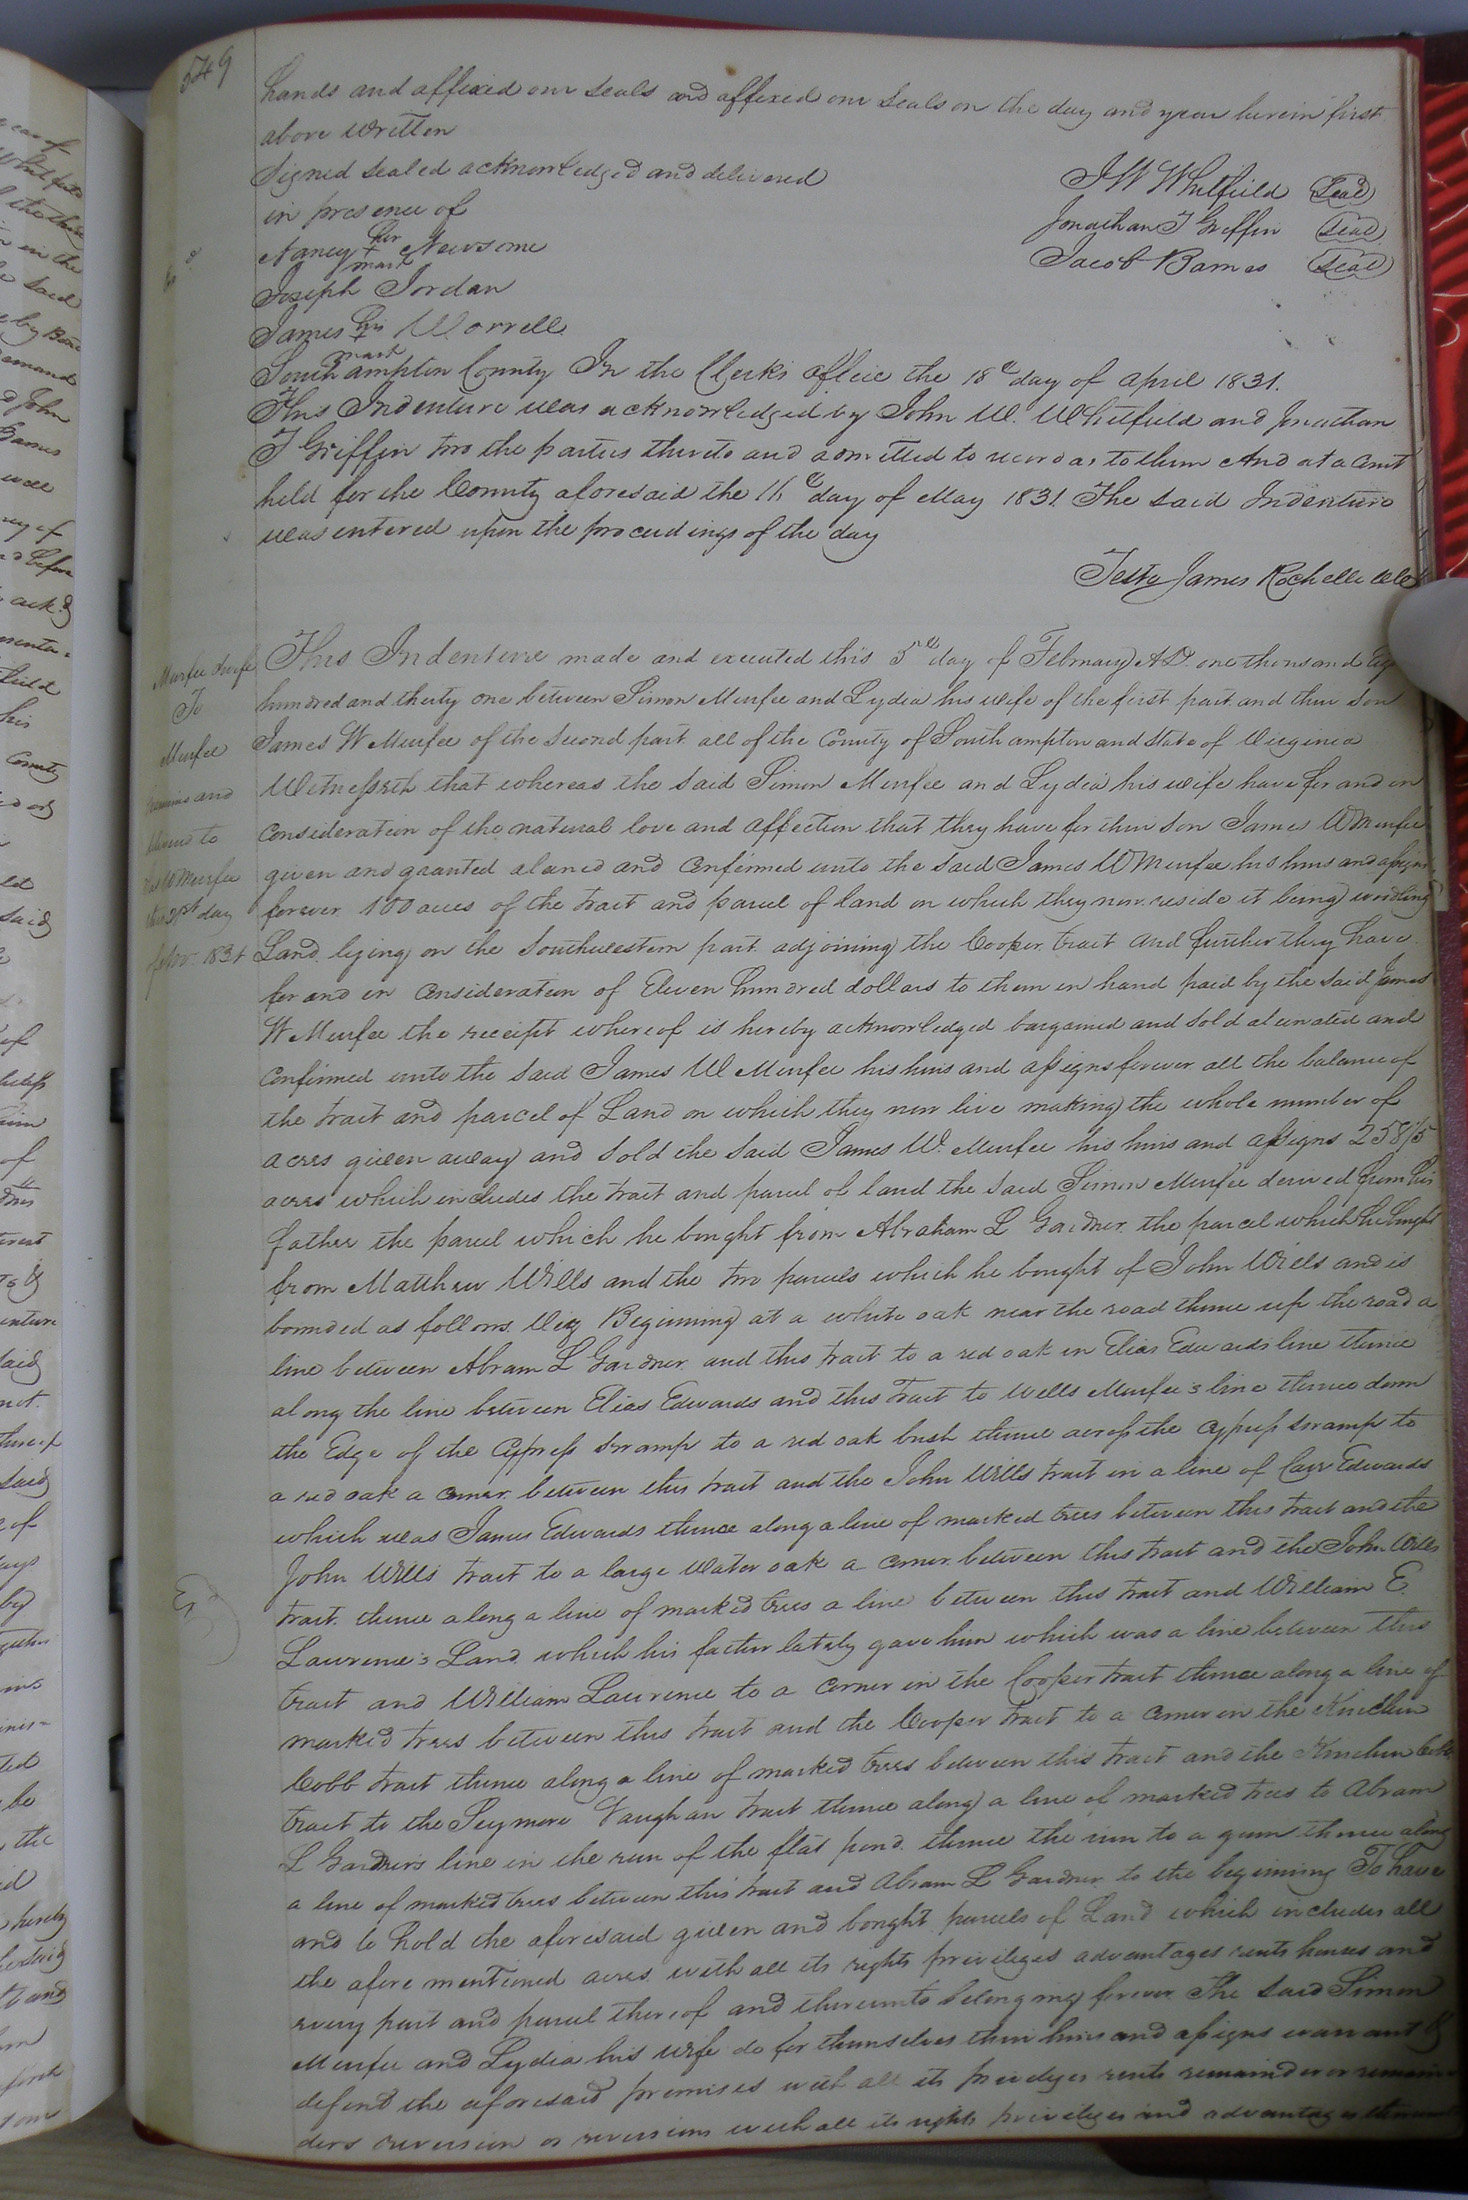 549
hands and affixed our seals and affixed our seals on the day and year herein first
above written
Signed sealed acknowledged and delivered
in presence of
J W Whitfield Seal
Jonathan T Griffin Seal
Jacob Barnes Seal
Nancy her + mark Newsome
Joseph Jordan
James his + mark Worrell
Southampton County In the Clerks office the 18th day of April 1831.
This Indenture was acknowledged by John W. Whitfield and Jonathan
T Griffin two the parties thereto and admitted to record as to them And at a Court
held for the County aforesaid the 16th day of May 1831 The said Indenture
was entered upon the proceedings of the day
Teste James Rochelle
Murfee & wife
To
Murfee
and
to
W Murfee
this 21st day
Nov. 1831
This Indenture made and executed this 5th day of February AD. one thousand
hundred and thirty one between Simon Murfee and Lydia his wife of the first part and their son
James W Murfee of the second part all of the County of Southampton and State of Virginia
Witnesseth that whereas the said Simon Murfee and Lydia his wife have for and in
consideration of the natural love and affection that they have for their son James W Murfee
given and granted aliened and confirmed unto the said James W Murfee his heirs and assigns
forever 100 acres of the tract and parcel of land on which they now reside it being woodling
Land lying on the Southwestern part adjoining the Cooper tract and further they have
for and in consideration of Eleven hundred dollars to them in hand paid by the said James
W Murfee the receipt whereof is hereby acknowledged bargained and sold alienated and
confirmed unto the said James W Murfee his heirs and assigns forever all the balance of
the tract and parcel of Land on which they now live making the whole number of
acres given away and sold the said James W. Murfee his heirs and assigns 258/5
acres which includes the tract and parcel of land the said Simon Murfee derived from his
father the parcel which he bought from Abraham L Gardner the parcel which he bought
from Matthew Wills and the two parcels which he bought of John Wills and is
bounded as follows Viz Beginning at a white oak near the road thence up the road a
line between Abram L Gardner and this tract to a red oak in Elias Edwards line thence
along the line between Elias Edwards and this Tract to Wells Murfee's line thence down
the Edge of the Cypress swamp to a red oak bush thence across the cypress swamp to
a red oak a corner between this tract and the John Wills tract in a line of Carr Edwards
which was James Edwards thence along a line of marked trees between this tract and the
John Wills tract to a large Water oak a corner between this tract and the John Wills
tract thence along a line of marked trees a line between this tract and William E.
Lawrence's Land which his father lately gave him which was a line between this
tract and William Lawrence to a corner in the Cooper tract thence along a line of
marked trees between this tract and the Cooper tract to a corner in the Kinchen
Cobb tract thence along a line of marked trees between this tract and the Kinchen Cobb
tract to the Seymore Vaughan tract thence along a line of marked trees to Abram
L Gardners line in the run of the flat pond thence the run to a gum thence along
a line of marked trees between this tract and Abram L Gardner to the beginning To have
and to hold the aforesaid given and bought parcels of Land which includes all
the afore mentioned acres with all its rights privileges advantages rents houses and
every part and parcel thereof and thereunto belonging forever The said Simon
Murfee and Lydia his wife do for themselves their heirs and assigns warrant &
defend the aforesaid premises with all its privileges rents remainder or remain
ders reversion or reversions with all its rights privileges and advantages